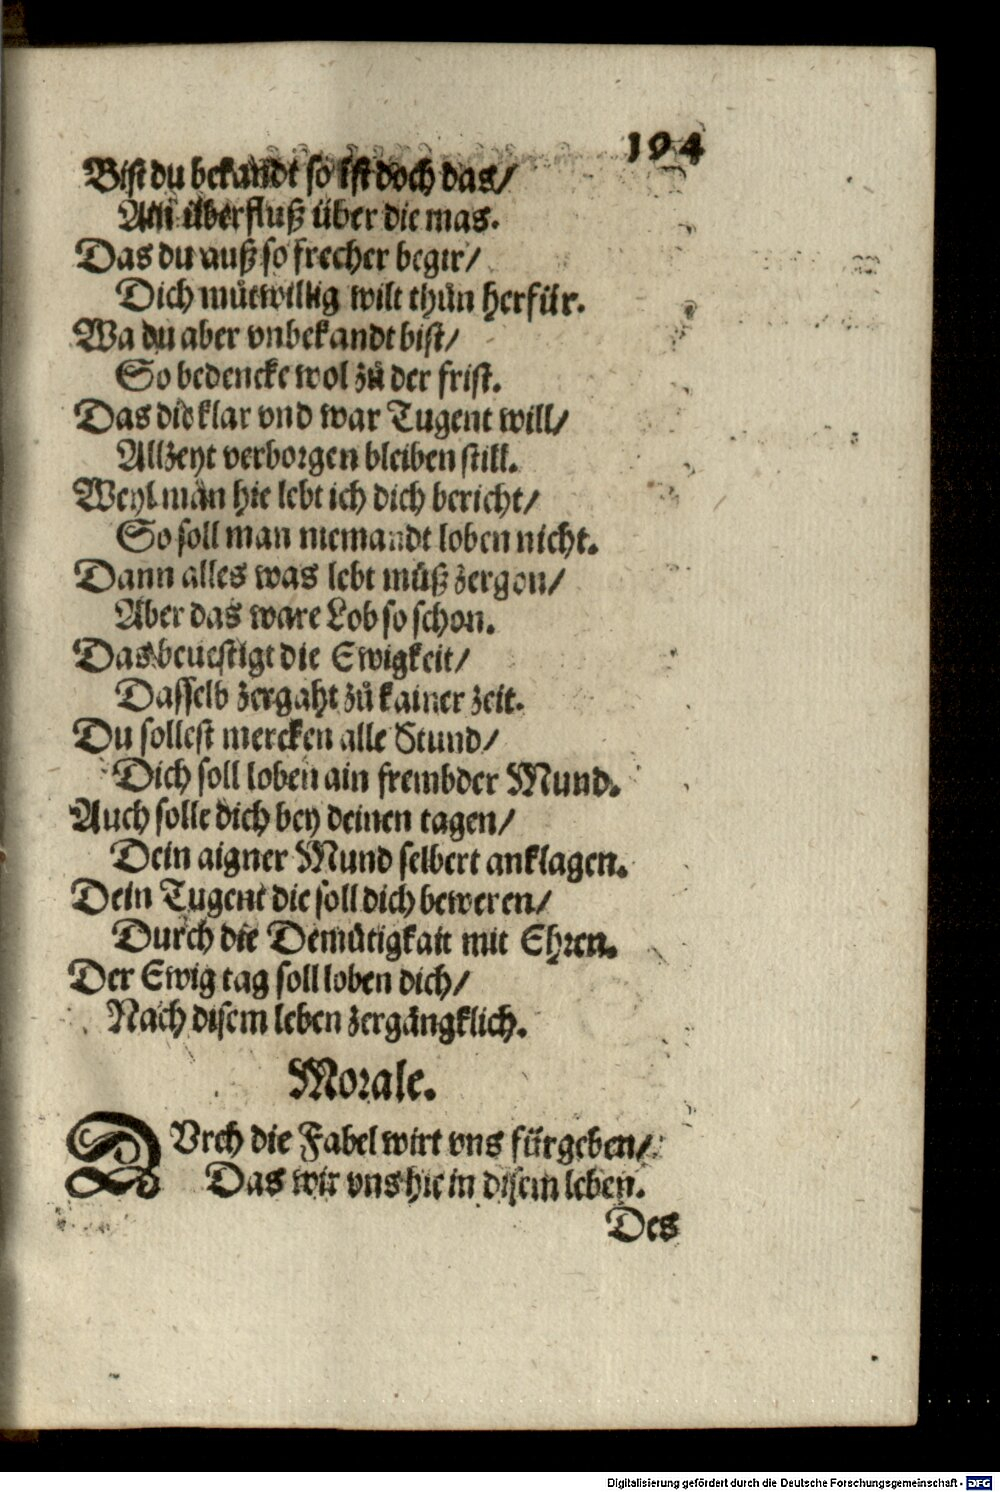 194
Bist du bekandt so ist doch das/
Ain überfluß über die mas.
Das du auß so frecher begir/
Dich můtwillig wilt thůn herfür.
Wa du aber vnbekandt bist/
So bedencke wol zů der frist.
Das die klar vnd war Tugent will/
Allzeyt verborgen bleiben still.
Weyl man hie lebt ich dich bericht/
So soll man niemandt loben nicht.
Dann alles was lebt můß zergon/
Aber das ware Lob so schon.
Das beuestigt die Ewigkeit/
Dasselb zergaht zů kainer zeit.
Du sollest mercken alle Stund/
Dich soll loben ain frembder Mund.
Auch solle dich bey deinen tagen/
Dein aigner Mund selbert anklagen.
Dein Tugent die soll dich beweren/
Durch die Demůtigkait mit Ehren.
Der Ewig tag soll loben dich/
Nach disem leben zergängklich.
Morale.
DVrch die Fabel wirt vns fürgeben/
Das wir vns hie in disem leben.
Des
Digitalisierung gefördert durch die Deutsche Forschungsgemeinschaft - DFG